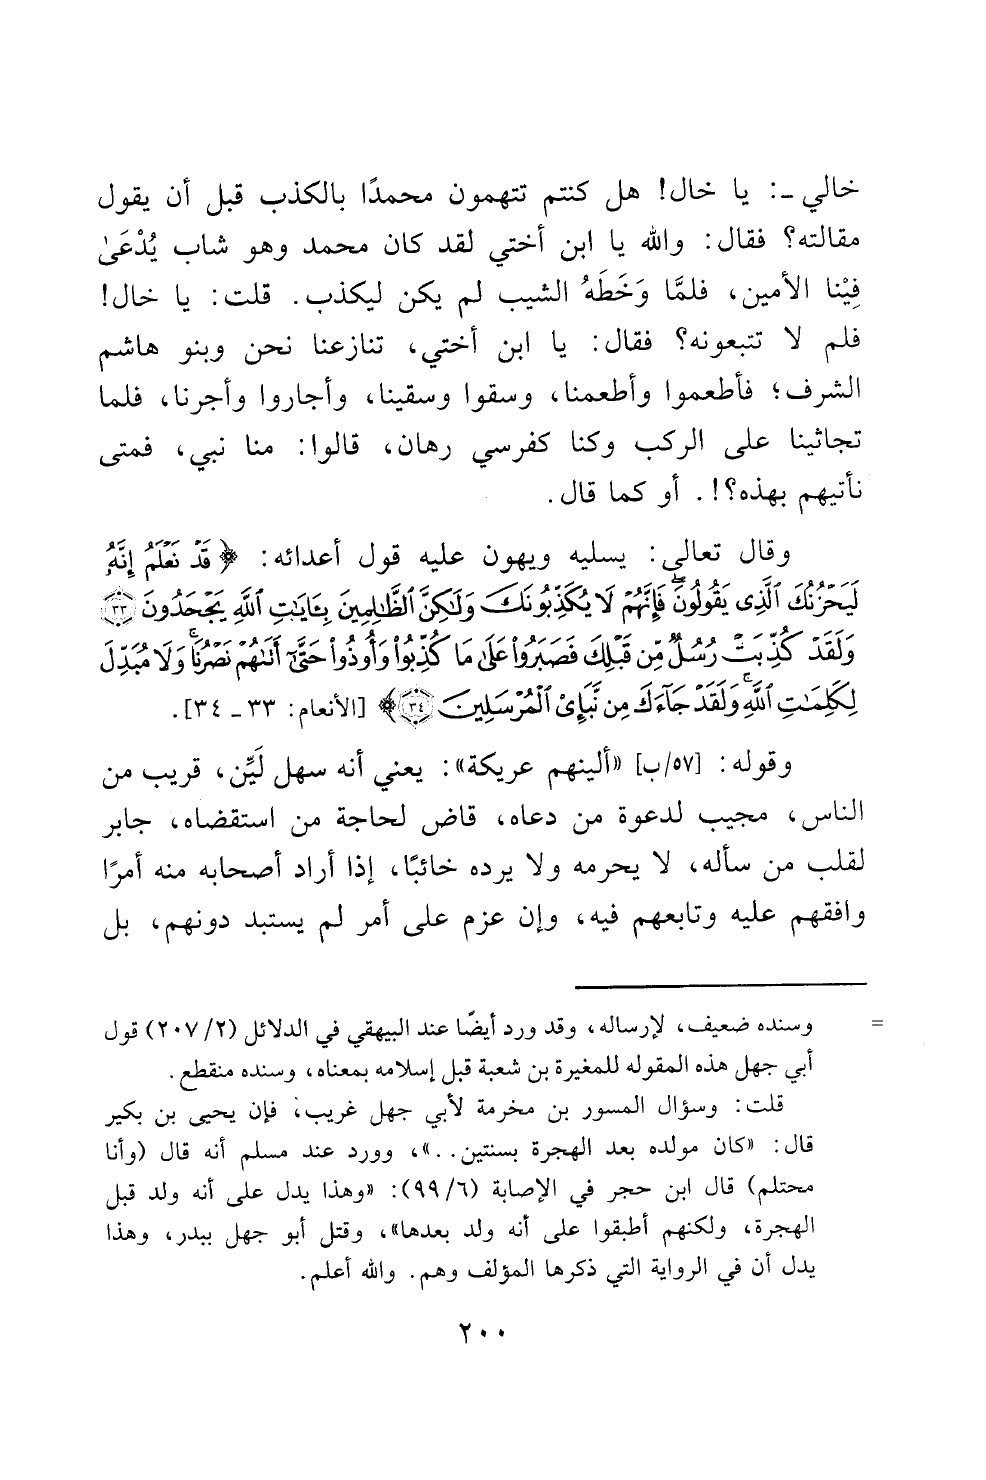 خالي -: يا خال! هل كنتم تتهمون محمدًا بالكذب قبل أن يقول
مقالته؟ فقال: والله يا ابن أختي لقد كان محمد وهو شاب يُدْعَىٰ
فِيْنا الأمين، فلمَّا وَخَطَهُ الشيب لم يكن ليكذب. قلت: يا خال!
فلم لا تتبعونه؟ فقال: يا ابن أختي، تنازعنا نحن وبنو هاشم
الشرف؛ فأطعموا وأطعمنا، وسقوا وسقينا، وأجاروا وأجرنا، فلما
تجاثينا على الركب وكنا كفرسي رهان، قالوا: منا نبي، فمتى
نأتيهم بهذه؟!. أو كما قال.
وقال تعالى: يسليه ويهون عليه قول أعدائه: ﴿ قَدْ نَعْلَمُ إِنَّهُۥ
لَيَحْزُنُكَ ٱلَّذِى يَقُولُونَۖ فَإِنَّهُمْ لَا يُكَذِّبُونَكَ وَلَٰكِنَّ ٱلظَّٰلِمِينَ بِـَٔايَٰتِ ٱللَّهِ يَجْحَدُونَ ٣٣
وَلَقَدْ كُذِّبَتْ رُسُلٌ مِّن قَبْلِكَ فَصَبَرُوا۟ عَلَىٰ مَا كُذِّبُوا۟ وَأُوذُوا۟ حَتَّىٰٓ أَتَىٰهُمْ نَصْرُنَاۚ وَلَا مُبَدِّلَ
لِكَلِمَٰتِ ٱللَّهِۚ وَلَقَدْ جَآءَكَ مِن نَّبَإِى۟ ٱلْمُرْسَلِينَ ٣٤ ﴾ [الأنعام: ٣٣ - ٣٤].
وقوله: [٥٧/ب] «ألينهم عريكة»: يعني أنه سهل لَيِّن، قريب من
الناس، مجيب لدعوة من دعاه، قاض لحاجة من استقضاه، جابر
لقلب من سأله، لا يحرمه ولا يرده خائبًا، إذا أراد أصحابه منه أمرًا
وافقهم عليه وتابعهم فيه، وإن عزم على أمر لم يستبد دونهم، بل
= وسنده ضعيف، لإرساله، وقد ورد أيضًا عند البيهقي في الدلائل (٢/ ٢٠٧) قول
أبي جهل هذه المقوله للمغيرة بن شعبة قبل إسلامه بمعناه، وسنده منقطع.
قلت: وسؤال المسور بن مخرمة لأبي جهل غريب، فإن يحيى بن بكير
قال: «كان مولده بعد الهجرة بسنتين..»، وورد عند مسلم أنه قال (وأنا
محتلم) قال ابن حجر في الإصابة (٦/ ٩٩): «وهذا يدل على أنه ولد قبل
الهجرة، ولكنهم أطبقوا على أنه ولد بعدها»، وقتل أبو جهل ببدر، وهذا
يدل أن في الرواية التي ذكرها المؤلف وهم. والله أعلم.
٢٠٠